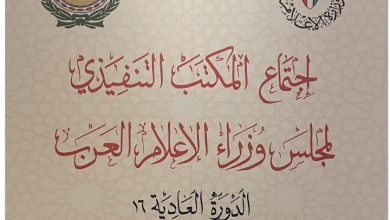 اجتماع المكتب التنفيذي
لمجلس وزراء الإعلام العرب
الدورة العادية ١٦